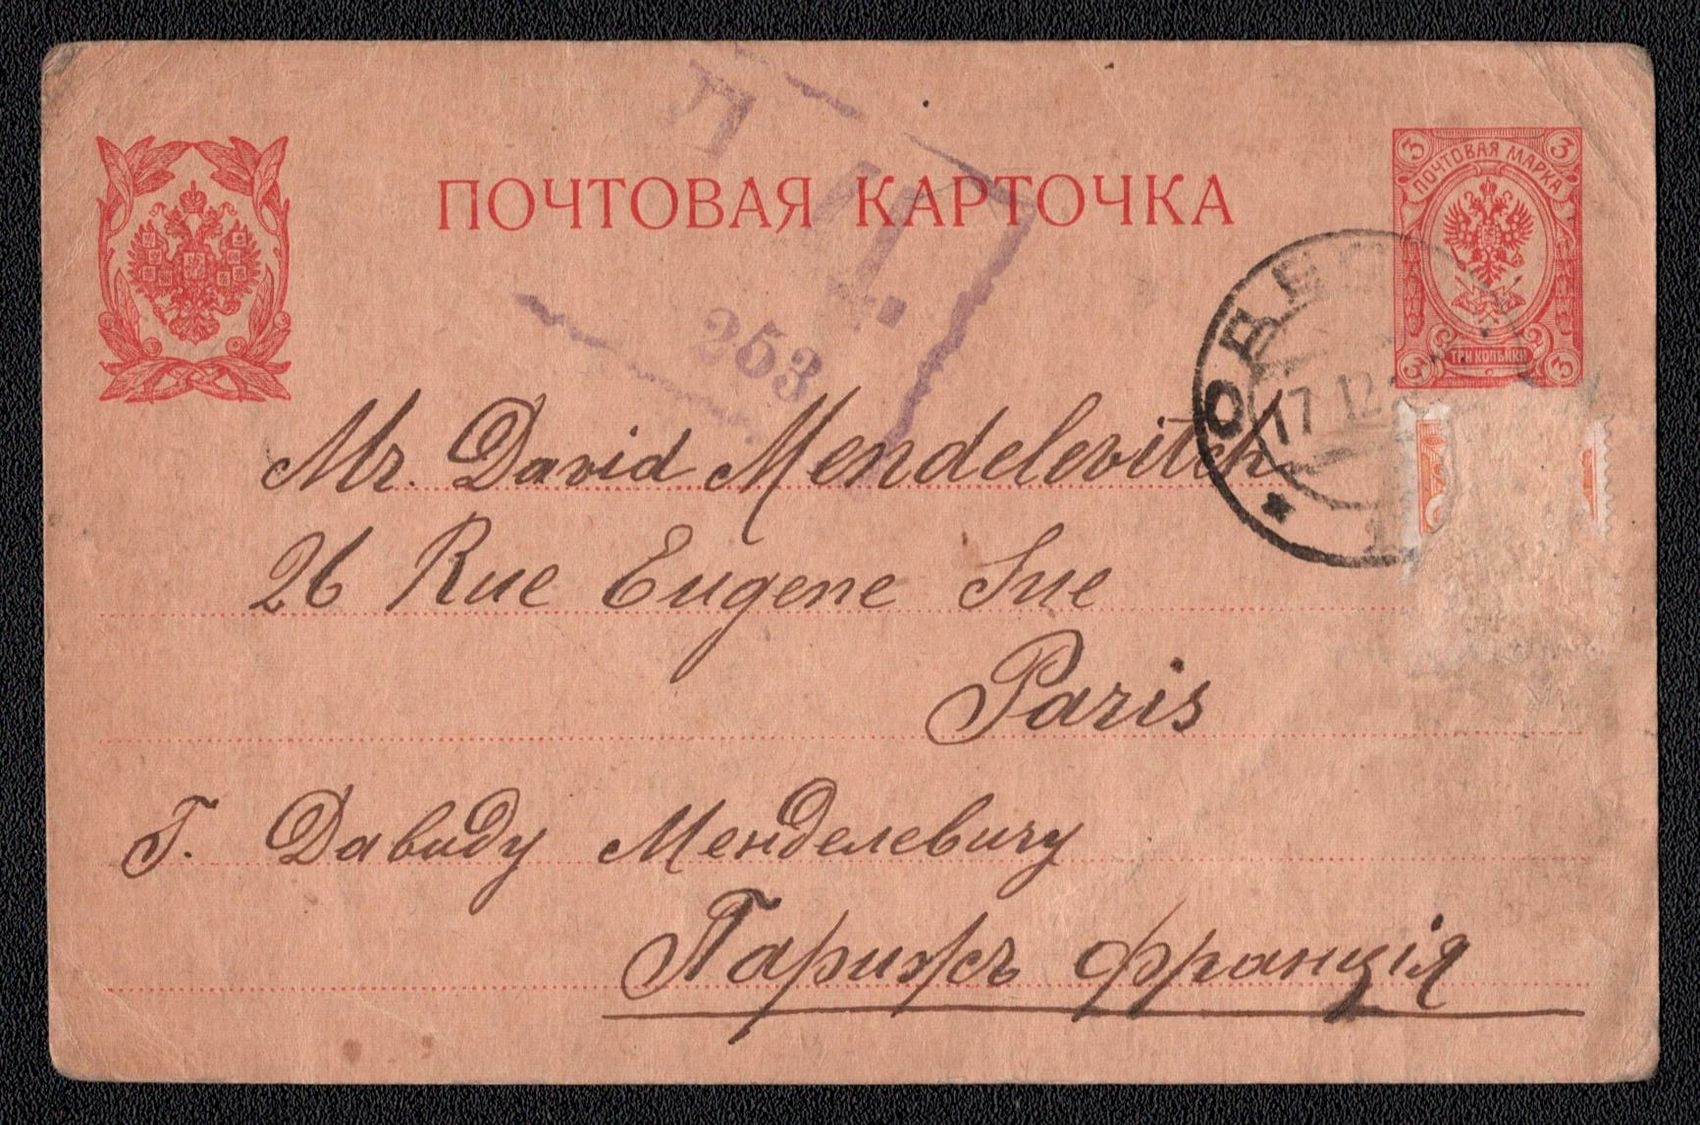 ПОЧТОВАЯ КАРТОЧКА
3 3
ПОЧТОВАЯ МАРКА
3 ТРИ КОПѢЙКИ 3
253
17.12
Mr. David Mendelevitch
26 Rue Eugene Sue
Paris
Г. Давиду Менделевичу
Парижъ Франція